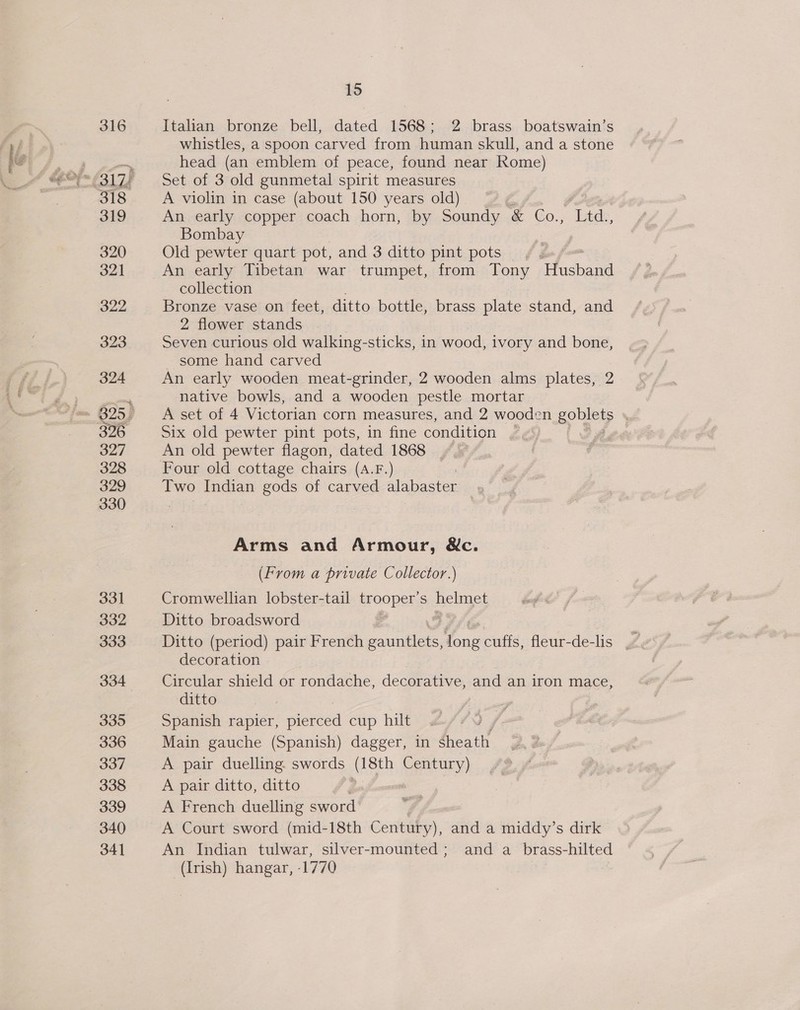 15
316 Italian bronze bell, dated 1568; 2 brass boatswain's
whistles, a spoon carved from human skull, and a stone
head (an emblem of peace, found near Rome)
317 Set of 3 old gunmetal spirit measures
318 A violin in case (about 150 years old)
319 An early copper coach horn, by Soundy & Co., Ltd.,
Bombay
320 Old pewter quart pot, and 3 ditto pint pots
321 An early Tibetan war trumpet, from Tony Husband
collection
322 Bronze vase on feet, ditto bottle, brass plate stand, and
2 flower stands
323 Seven curious old walking-sticks, in wood, ivory and bone,
some hand carved
324 An early wooden meat-grinder, 2 wooden alms plates, 2
native bowls, and a wooden pestle mortar
325 A set of 4 Victorian corn measures, and 2 wooden goblets
326 Six old pewter pint pots, in fine condition
327 An old pewter flagon, dated 1868
328 Four old cottage chairs (A.F.)
329 Two Indian gods of carved alabaster
330
Arms and Armour, &c.
(From a private Collector.)
331 Cromwellian lobster-tail trooper's helmet
332 Ditto broadsword
333 Ditto (period) pair French gauntlets, long cuffs, fleur-de-lis
decoration
334 Circular shield or rondache, decorative, and an iron mace,
ditto
335 Spanish rapier, pierced cup hilt
336 Main gauche (Spanish) dagger, in sheath
337 A pair duelling swords (18th Century)
338 A pair ditto, ditto
339 A French duelling sword
340 A Court sword (mid-18th Century), and a middy's dirk
341 An Indian tulwar, silver-mounted; and a brass-hilted
(Irish) hangar, 1770